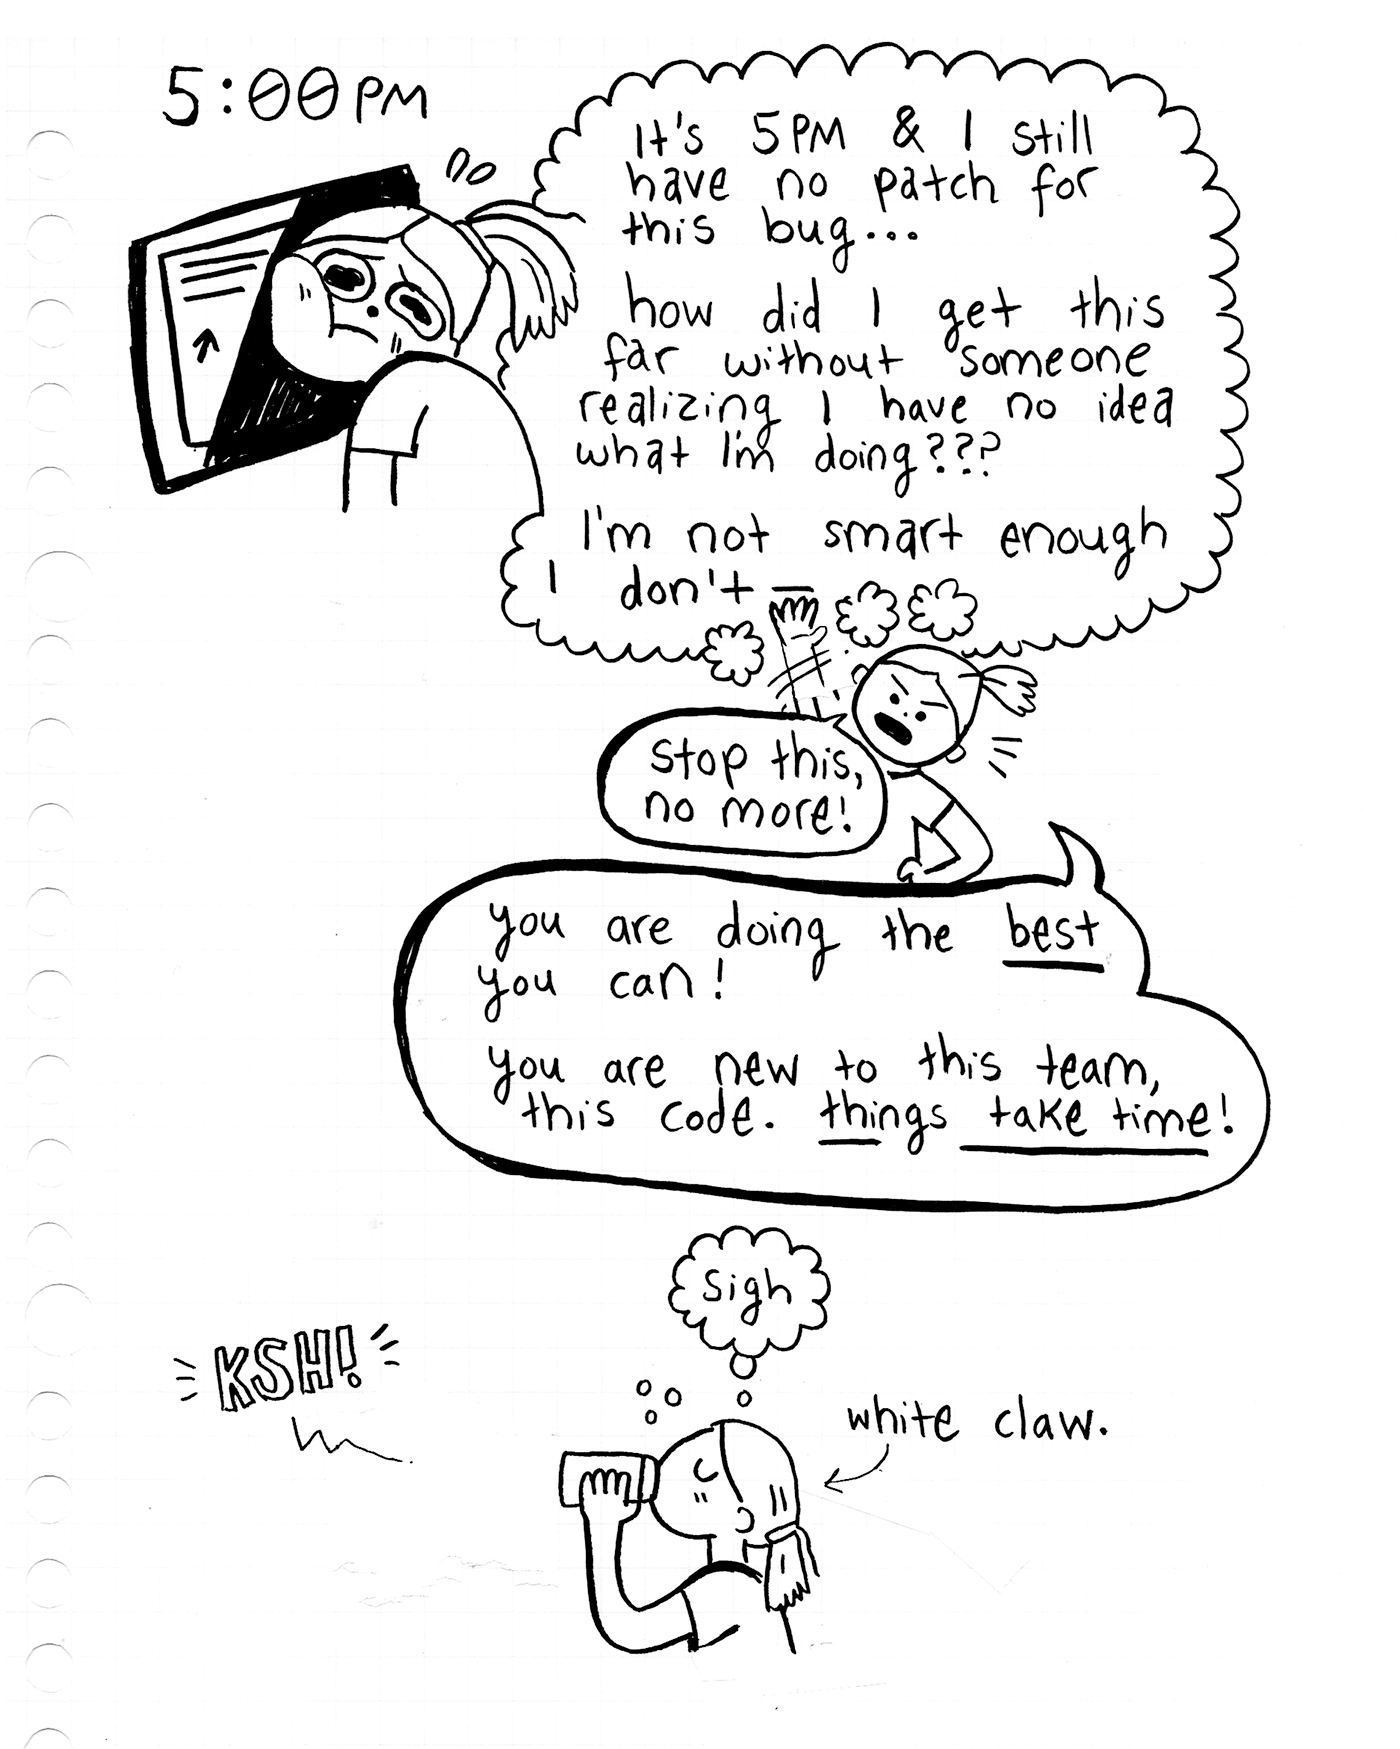 5:00 PM
It's 5PM & I still
have no patch for
this bug...
how did I get this
far without someone
realizing I have no idea
what I'm doing???
I'm not smart enough
I don't —
Stop this,
no more!
you are doing the best
you can!
you are new to this team,
this code. things take time!
Sigh
KSH!
white claw.